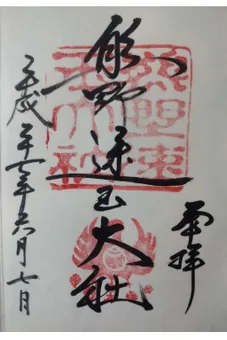 奉拝
熊野速玉大社
平成二十 年六月七日
熊野速
玉大社